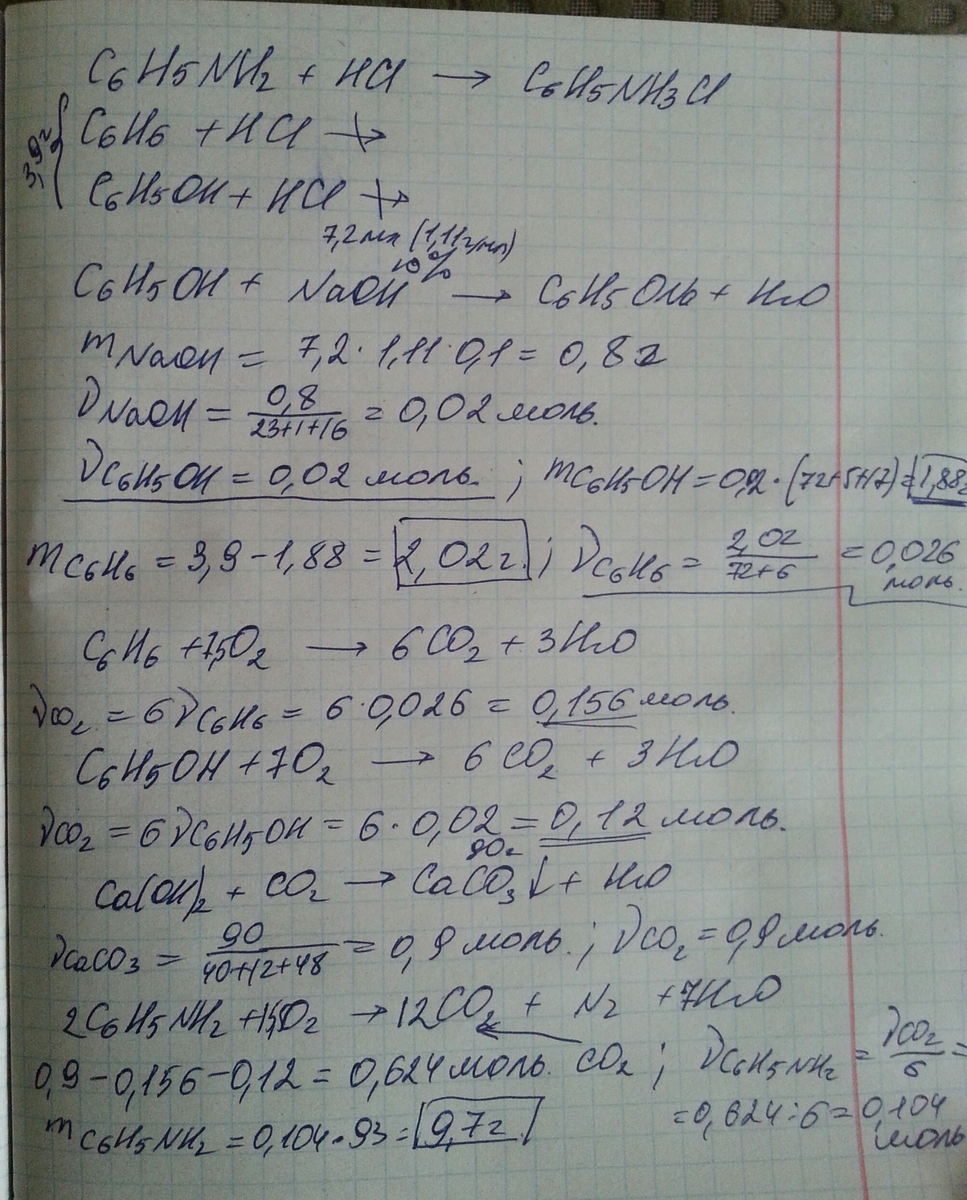 C₆H₅NH₂ + HCl → C₆H₅NH₃Cl
3,9г { C₆H₆ + HCl ↛
C₆H₅OH + HCl ↛
7,2мл (1,11г/мл)
10%
C₆H₅OH + NaOH → C₆H₅ONa + H₂O
mNaOH = 7,2·1,11·0,1 = 0,8г
νNaOH = 0,8/(23+1+16) = 0,02 моль.
νC₆H₅OH = 0,02 моль. ; mC₆H₅OH = 0,02·(72+5+17) = 1,88г
mC₆H₆ = 3,9-1,88 = 2,02г. ; νC₆H₆ = 2,02/(72+6) = 0,026 моль.
C₆H₆ + 7,5O₂ → 6CO₂ + 3H₂O
νCO₂ = 6νC₆H₆ = 6·0,026 = 0,156 моль.
C₆H₅OH + 7O₂ → 6CO₂ + 3H₂O
νCO₂ = 6νC₆H₅OH = 6·0,02 = 0,12 моль.
90г
Ca(OH)₂ + CO₂ → CaCO₃↓ + H₂O
νCaCO₃ = 90/(40+12+48) = 0,9 моль. ; νCO₂ = 0,9 моль.
2C₆H₅NH₂ + 15,5O₂ → 12CO₂ + N₂ + 7H₂O
0,9-0,156-0,12 = 0,624 моль. CO₂ ; νC₆H₅NH₂ = νCO₂/6 =
= 0,624:6 = 0,104 моль
mC₆H₅NH₂ = 0,104·93 = 9,7г